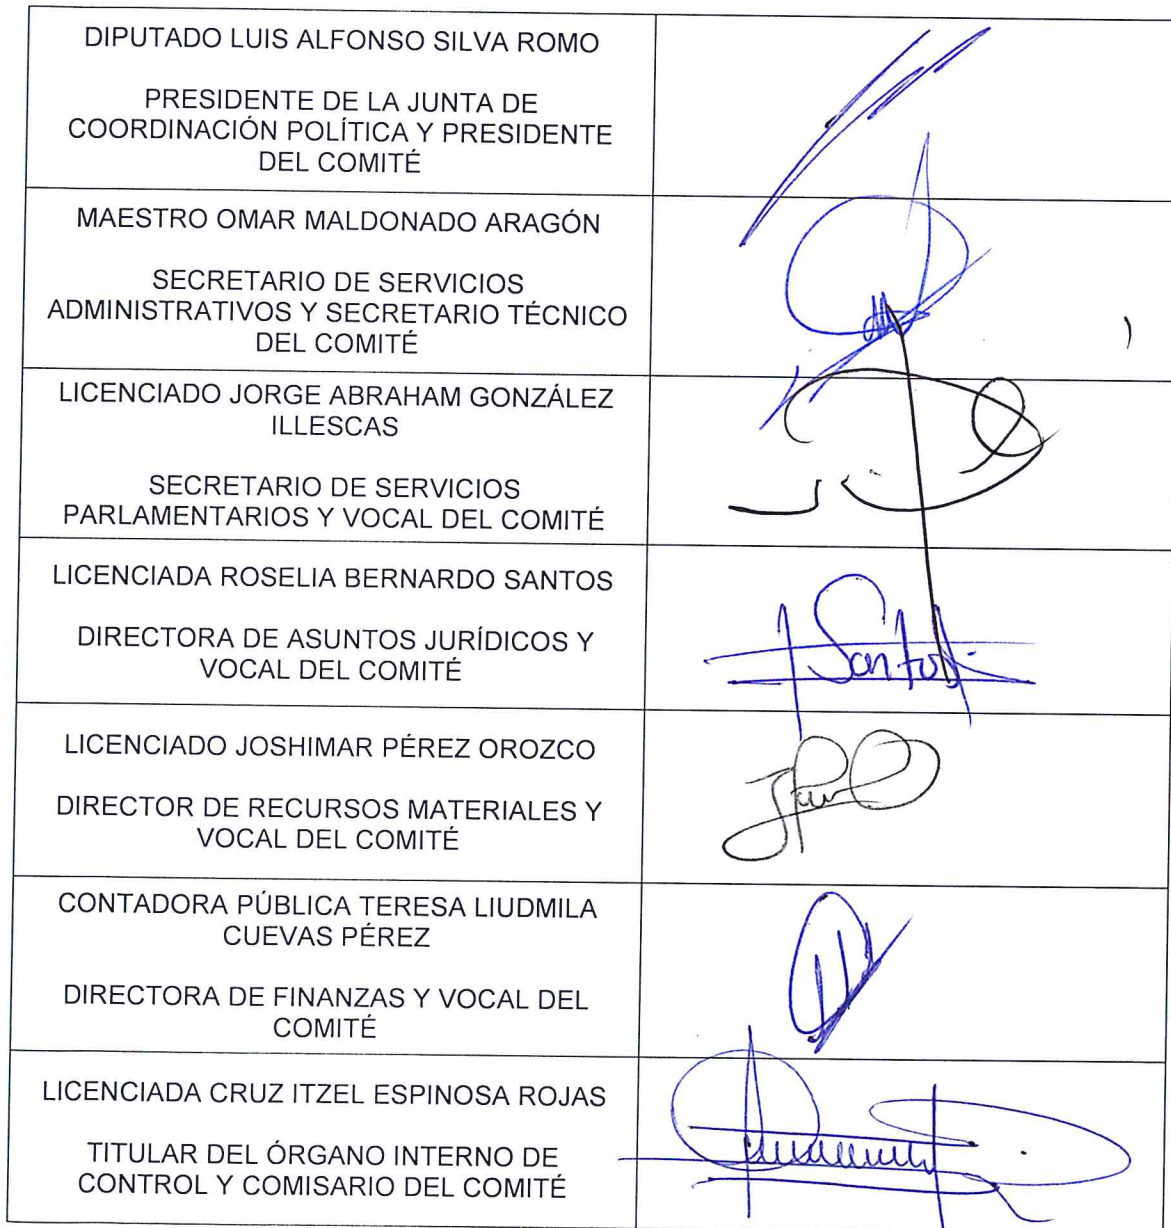 DIPUTADO LUIS ALFONSO SILVA ROMO
PRESIDENTE DE LA JUNTA DE
COORDINACIÓN POLÍTICA Y PRESIDENTE
DEL COMITÉ
MAESTRO OMAR MALDONADO ARAGÓN
SECRETARIO DE SERVICIOS
ADMINISTRATIVOS Y SECRETARIO TÉCNICO
DEL COMITÉ
LICENCIADO JORGE ABRAHAM GONZÁLEZ
ILLESCAS
SECRETARIO DE SERVICIOS
PARLAMENTARIOS Y VOCAL DEL COMITÉ
LICENCIADA ROSELIA BERNARDO SANTOS
DIRECTORA DE ASUNTOS JURÍDICOS Y
VOCAL DEL COMITÉ
Santos
LICENCIADO JOSHIMAR PÉREZ OROZCO
DIRECTOR DE RECURSOS MATERIALES Y
VOCAL DEL COMITÉ
CONTADORA PÚBLICA TERESA LIUDMILA
CUEVAS PÉREZ
DIRECTORA DE FINANZAS Y VOCAL DEL
COMITÉ
LICENCIADA CRUZ ITZEL ESPINOSA ROJAS
TITULAR DEL ÓRGANO INTERNO DE
CONTROL Y COMISARIO DEL COMITÉ